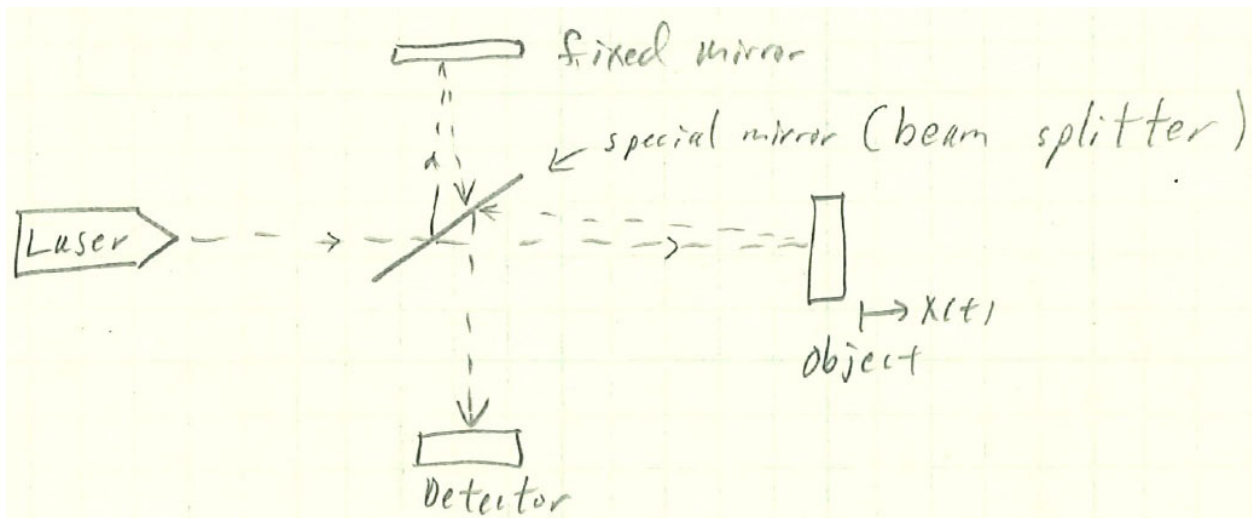 fixed mirror
special mirror (beam splitter)
Laser
X(t)
Object
Detector